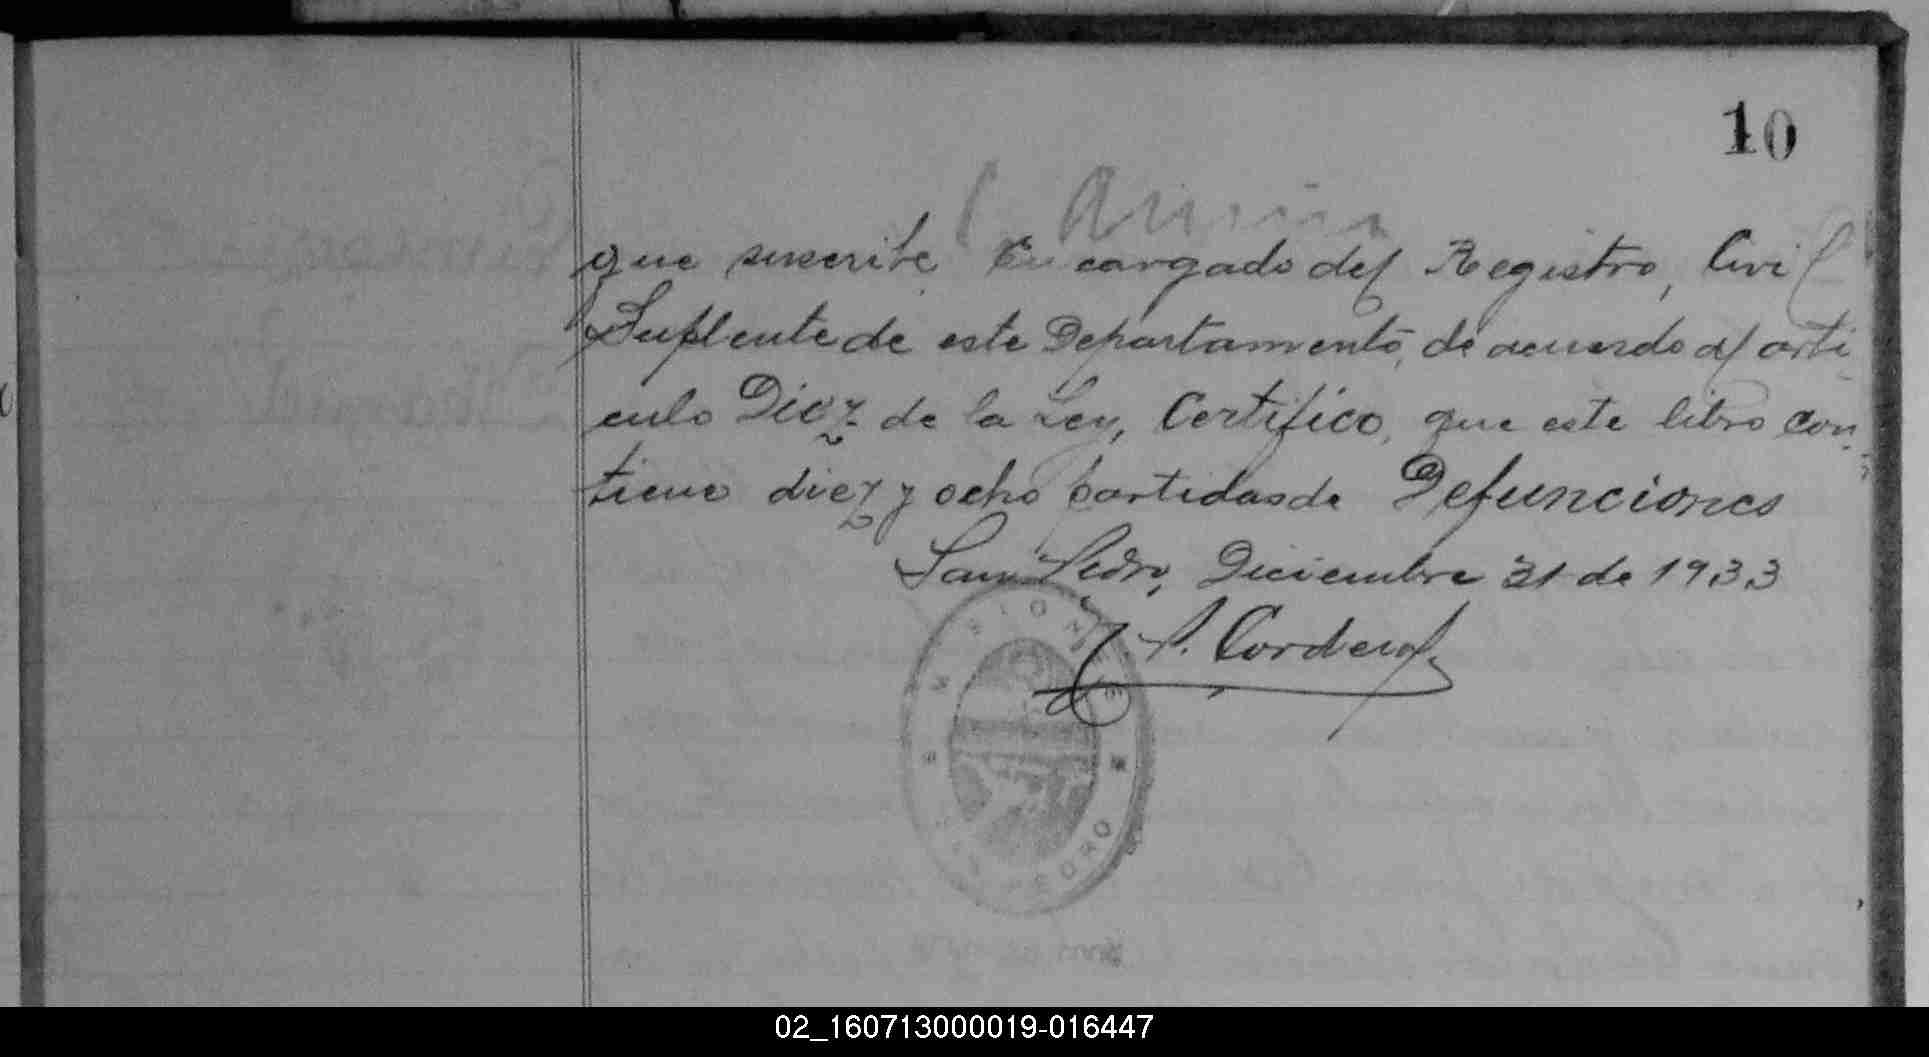 10
que suscribe Encargado del Registro, Civil
Suplente de este Departamento, de acuerdo al arti
culo Diez de la Ley, Certifico, que este libro con-
tiene diez y ocho partidas de Defunciones
San Pedro, Diciembre 31 de 1933
P. Cordero
02_160713000019-016447